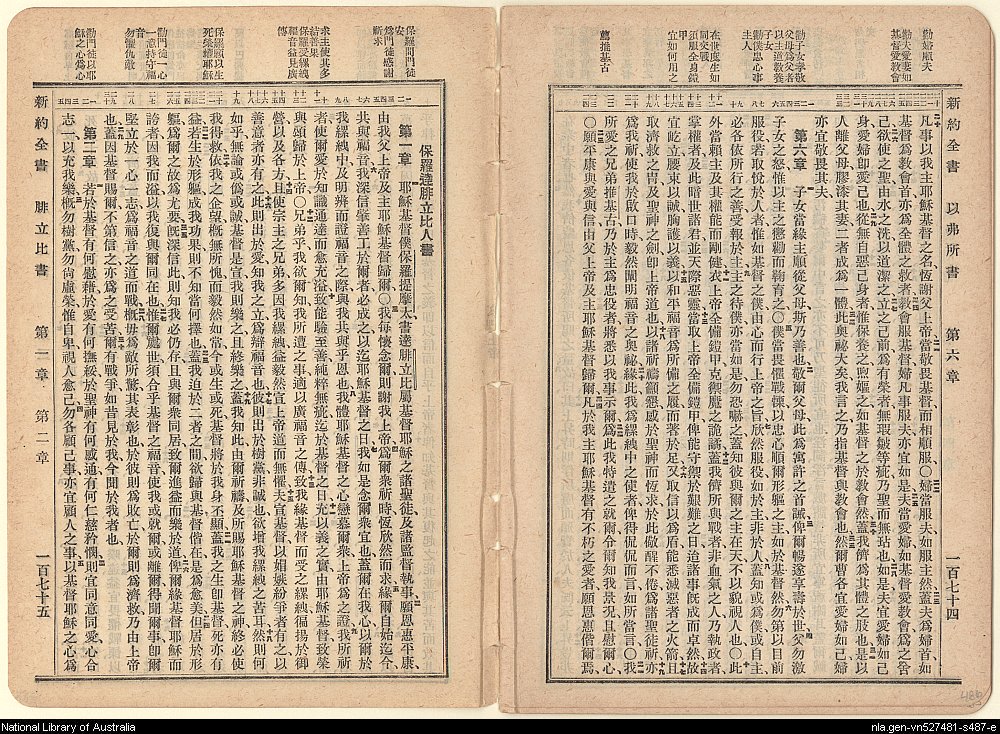 勸婦順夫
勸夫愛妻如基督愛教會
勸子女孝敬父母爲父者以主道教養子女
勸僕忠心事主人
在世處生如同交戰
須服全身鎧甲
宜如何用之
薦推基古
新約全書 以弗所書 第六章 一百七十四
凡事以我主耶穌基督之名恆謝父上帝當敬畏基督而相順服〇婦當服夫如服主然蓋夫爲婦首如
基督爲教會首亦爲全體之救者教會服基督婦凡事服夫亦宜如是夫當愛婦如基督愛教會爲之舍
己欲使之聖由水之洗以道潔之立之己前爲有榮者無瑕皺等疵乃聖而無玷也如是夫宜愛婦如己
身愛婦卽愛己也從無自惡己身者惟保養之煦嫗之如基督於教會然蓋我儕爲其體之肢也是以
人離父母膠漆其妻二者成爲一體此奧祕大矣我言之乃指基督與教會也然爾曹各宜愛婦如己婦
亦宜敬畏其夫
第六章 子女當緣主順從父母斯乃善也敬爾父母此爲寓許之首誡俾爾暢遂享壽於世父勿激
子女之怒惟以主之懲勸而鞠育之〇僕當畏懼戰慄以忠心順爾形軀之主如於基督然勿第以目前
服役若取悅於人者惟如基督之僕由心而行上帝之旨欣然服役如於主非於人蓋知或爲僕或自主
必各依所行之善受報於主主之待僕亦當如是勿恐嚇之蓋知彼與爾之主在天不以貌視人也〇此
外當賴主及其權能而剛健衣上帝全備鎧甲克禦魔之詭譎蓋我儕所與戰者非血氣之人乃執政者
掌權者及此暗世諸君並天際惡靈當取上帝全備鎧甲俾能守禦於艱難之日迨諸事旣成而卓然故
宜屹立腰束以誠胸護以義以和平福音爲所備之屨而著於足又取信以爲盾能悉滅惡者之火箭且
取濟救之冑及聖神之劍卽上帝道也以諸祈禱籲懇感於聖神而恆求於此儆醒不倦爲諸聖徒祈亦
爲我祈欲於啟口時毅然闡明福音之奧祕緣此我爲縲絏中之使者俾得侃侃而言如所當言〇我
所愛之兄弟推基古乃於主爲忠役者將悉以我事示爾爲此我特遣之就爾令知我景況且慰爾心
〇願平康與愛與信由父上帝及主耶穌基督歸爾凡於我主耶穌基督有不朽之愛者願恩惠偕爾焉
保羅問門徒安
爲門徒感謝祈求
求主使其多結善果
保羅受縲絏福音益見廣傳
保羅願以生死榮耀耶穌
勸門徒一心一意持守福音
勿懼仇敵
勸門徒以耶穌之心爲心
新約全書 腓立比書 第一章 第二章 一百七十五
保羅達腓立比人書
第一章 耶穌基督僕保羅提摩太書達腓立比屬基督耶穌之諸聖徒及諸監督執事願恩惠平康
由我父上帝及主耶穌基督歸爾〇我每懷念爾則謝我上帝爲爾衆祈時恆欣然而求緣爾自始迄今
共與福音我深信肇善工於爾者必成之以迄耶穌基督之日我如是念爾衆宜也蓋爾在我心以爾於
我縲絏中及明辨而證福音之際與我共與乎恩也我體耶穌基督之心戀慕爾衆上帝爲之證我所祈
者使爾愛於知識通達而愈充溢致能驗至善純粹無疵迄於基督之日充以義之實由耶穌基督致榮
與頌歸於上帝〇兄弟乎我欲爾知我所遭之事適以廣福音之傳致我緣基督而受之縲絏播揚於御
營以及各方且使宗主之兄弟多因我縲絏益毅然宣上帝道而無懼夫宣基督以媢嫉紛爭者有之以
善意者亦有之此則出於愛知我之立爲辯福音也彼則出於樹黨非誠也欲增我縲絏之苦耳然則何
如乎無論或僞或誠基督是宣我則樂之且終樂之蓋我知此由爾祈禱及所賜耶穌基督之神終必使
我得救依我之企望概無所愧而毅然如常今或生或死基督將於我身丕顯蓋我之生卽基督死亦
益若生於形軀成我功果則不知當何擇也蓋我迫於二者之間欲歸與基督偕在是爲愈美但居於形
軀爲爾之故爲尤要旣深信此則知我必仍存且與爾衆同居致爾進益而樂於道俾爾緣基督耶穌而
誇者因我而溢以我復與爾同在也惟爾處世須合乎基督之福音使我或就爾或離爾得聞爾事卽爾
堅立於一心一志爲福音之道而戰概毋爲敵所驚其表彰也於彼則爲敗亡於爾則爲濟救乃由上帝
也蓋因基督賜爾不第信之亦爲之受苦爾有戰爭如昔見於我今聞於我者也
第二章 若於基督有何慰藉於愛有何撫綏於聖神有何感通有何仁慈矜憫則宜同意同愛心合
志一以充我樂概勿樹黨勿尚虛榮惟自卑視人愈己勿各顧己事亦宜顧人之事以基督耶穌之心爲
486
National Library of Australia
nla.gen-vn527481-s487-e